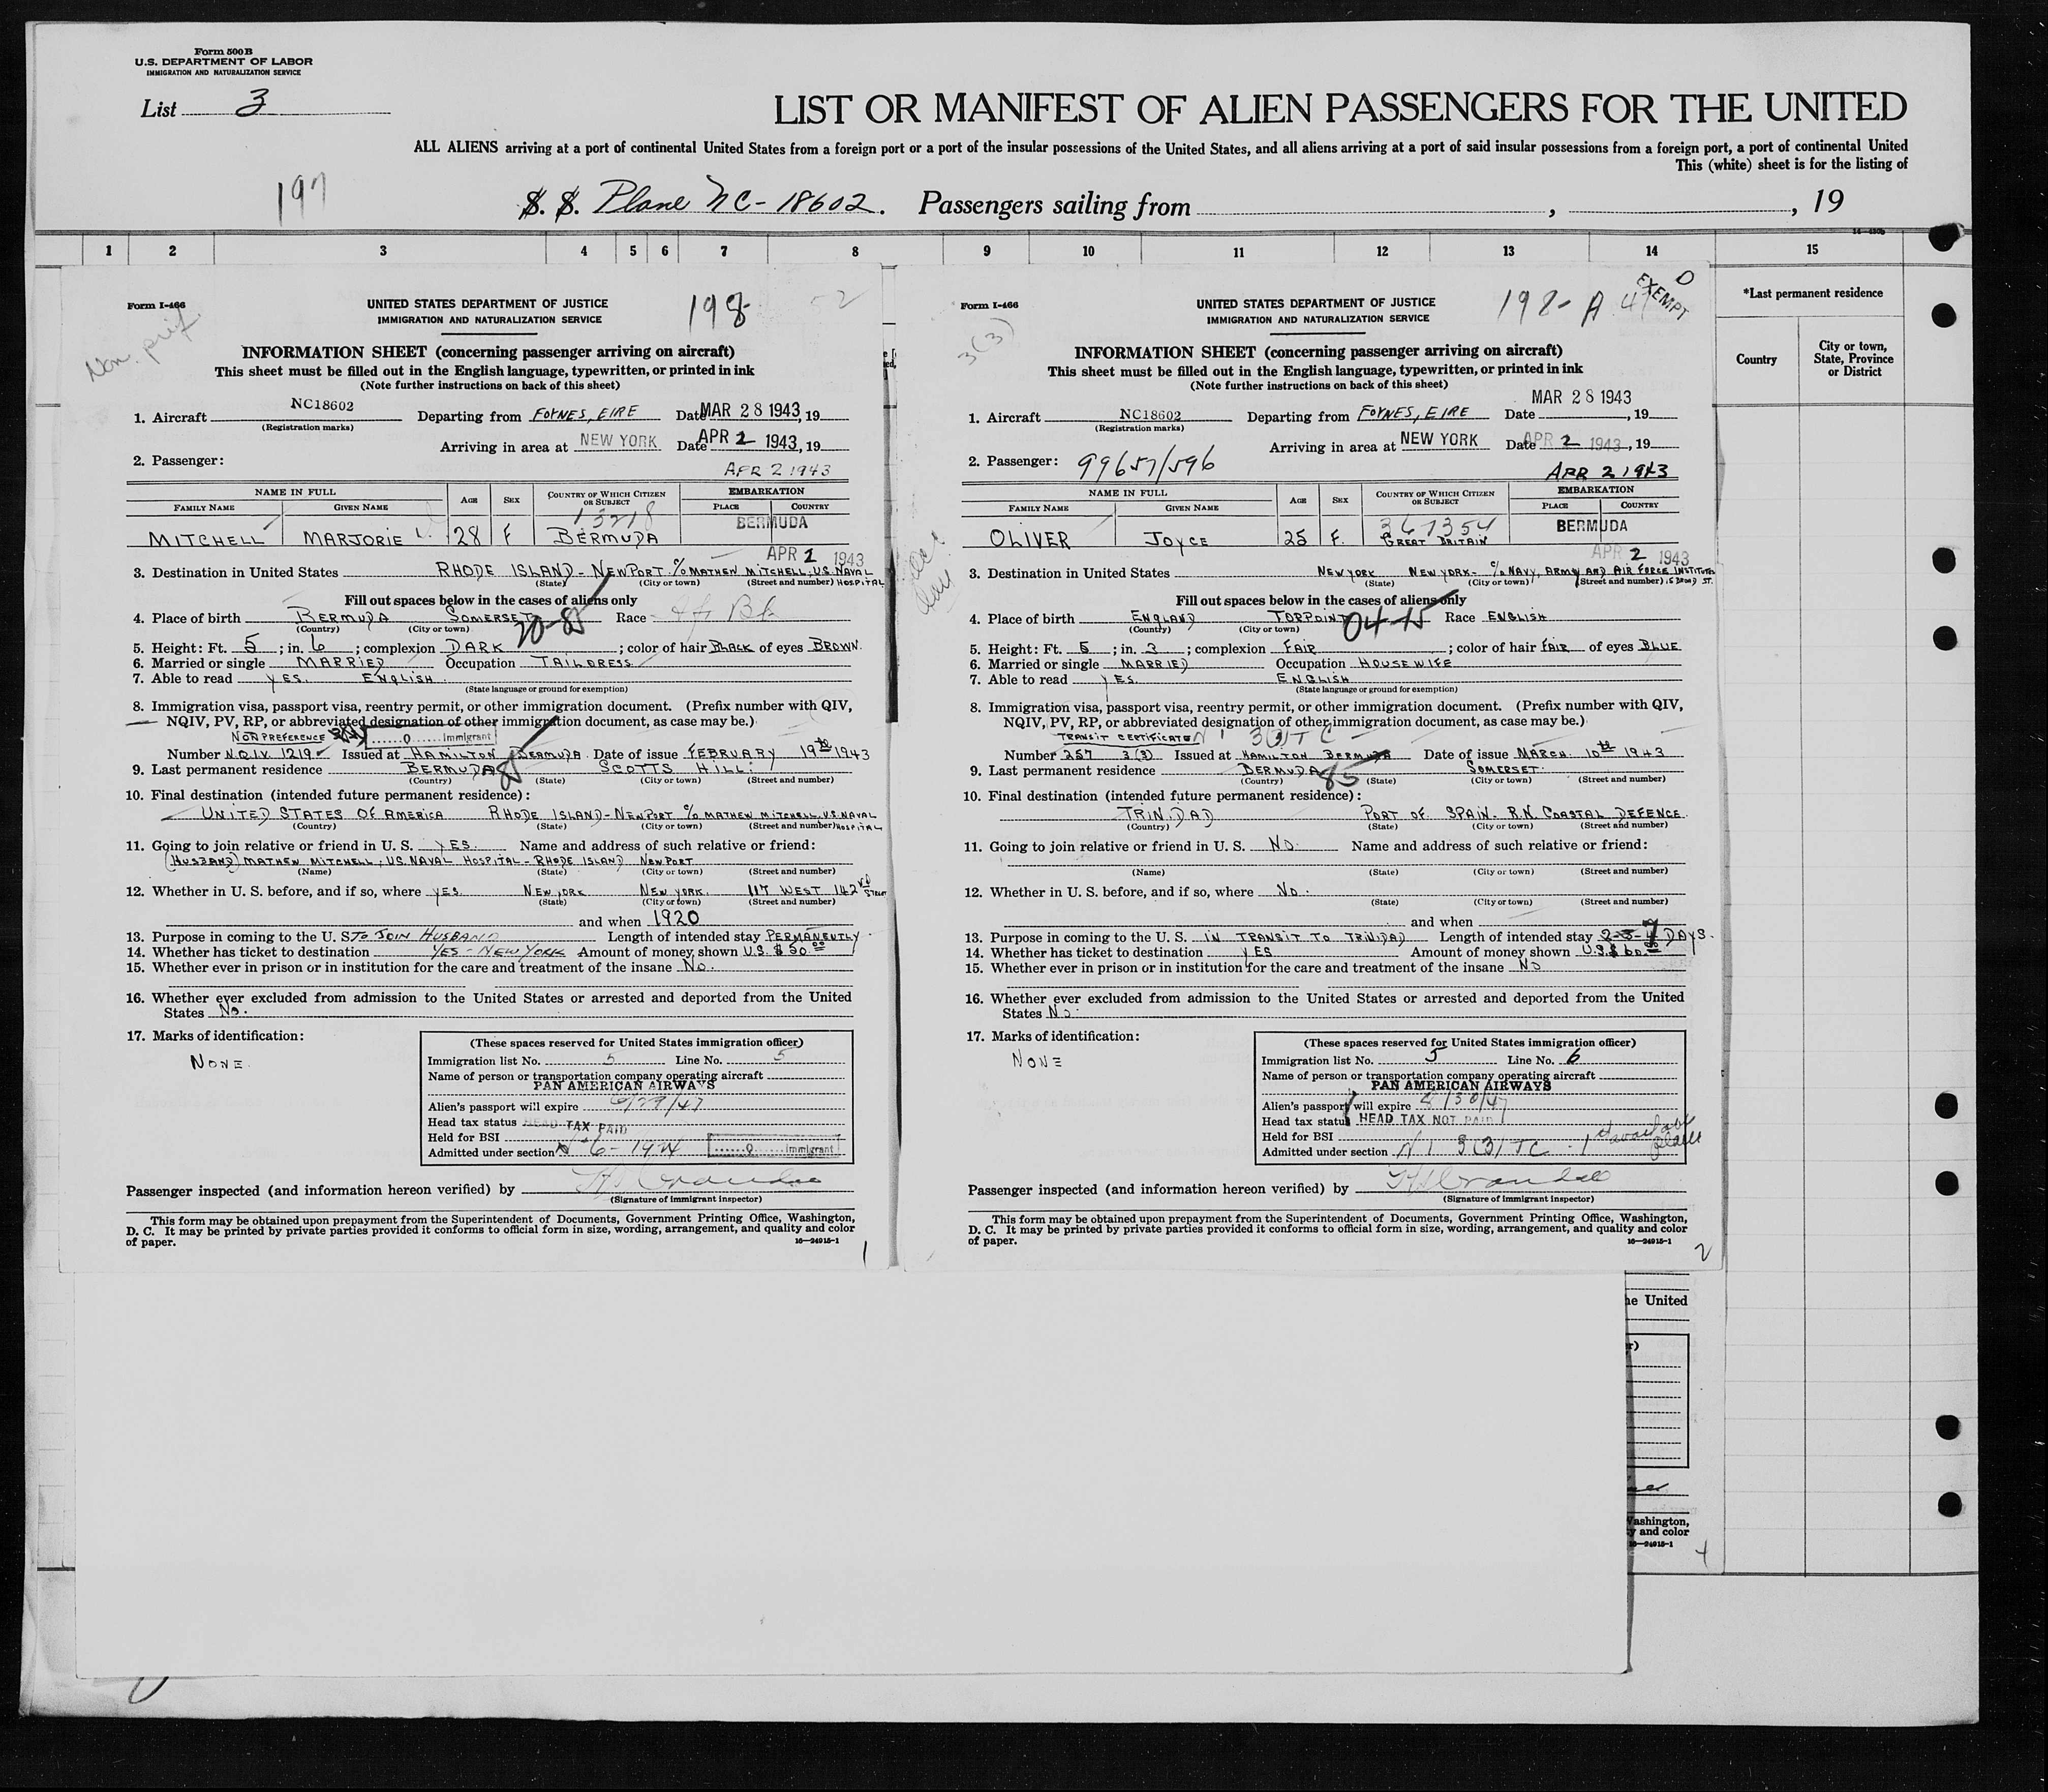 Form 500 B
U.S. DEPARTMENT OF LABOR
IMMIGRATION AND NATURALIZATION SERVICE
List 3
LIST OR MANIFEST OF ALIEN PASSENGERS FOR THE UNITED
ALL ALIENS arriving at a port of continental United States from a foreign port or a port of the insular possessions of the United States, and all aliens arriving at a port of said insular possessions from a foreign port, a port of continental United
This (white) sheet is for the listing of
197
S. S. Plane NC-18602. Passengers sailing from , , 19
1 2 3 4 5 6 7 8 9 10 11 12 13 14 15
*Last permanent residence
Country
City or town, State, Province or District
Form I-466
UNITED STATES DEPARTMENT OF JUSTICE
IMMIGRATION AND NATURALIZATION SERVICE
198
52
Non. pref.
INFORMATION SHEET (concerning passenger arriving on aircraft)
This sheet must be filled out in the English language, typewritten, or printed in ink
(Note further instructions on back of this sheet)
1. Aircraft NC18602 Departing from FOYNES, EIRE Date MAR 28 1943, 19
(Registration marks)
Arriving in area at NEW YORK Date APR 2 1943, 19
2. Passenger:
APR 2 1943
NAME IN FULL AGE SEX COUNTRY OF WHICH CITIZEN OR SUBJECT EMBARKATION
FAMILY NAME GIVEN NAME PLACE COUNTRY
13218 BERMUDA
MITCHELL MARJORIE L. 28 F BERMUDA
APR 2 1943
3. Destination in United States RHODE ISLAND - NEWPORT. c/o MATHEW MITCHELL, U.S. NAVAL HOSPITAL
(State) (City or town) (Street and number)
Fill out spaces below in the cases of aliens only
4. Place of birth BERMUDA SOMERSET Race Afr Blk
(Country) (City or town)
20-85
5. Height: Ft. 5; in. 6; complexion DARK; color of hair BLACK of eyes BROWN.
6. Married or single MARRIED Occupation TAILORESS
7. Able to read YES. ENGLISH.
(State language or ground for exemption)
8. Immigration visa, passport visa, reentry permit, or other immigration document. (Prefix number with QIV,
NQIV, PV, RP, or abbreviated designation of other immigration document, as case may be.)
NON PREFERENCE O Immigrant
Number N.Q.I.V. 1219 Issued at HAMILTON BERMUDA Date of issue FEBRUARY 19th 1943
9. Last permanent residence BERMUDA 85 SCOTTS HILL:
(Country) (State) (City or town) (Street and number)
10. Final destination (intended future permanent residence):
UNITED STATES OF AMERICA RHODE ISLAND - NEWPORT c/o MATHEW MITCHELL. U.S. NAVAL HOSPITAL
(Country) (State) (City or town) (Street and number)
11. Going to join relative or friend in U. S. YES. Name and address of such relative or friend:
(HUSBAND) MATHEW MITCHELL, U.S. NAVAL HOSPITAL - RHODE ISLAND NEWPORT
(Name) (State) (City or town) (Street and number)
12. Whether in U. S. before, and if so, where YES. NEW YORK NEW YORK. 117 WEST 142nd STREET
(State) (City or town) (Street and number)
and when 1920
13. Purpose in coming to the U. S. TO JOIN HUSBAND Length of intended stay PERMANENTLY
14. Whether has ticket to destination YES - NEW YORK Amount of money shown U.S. $ 50.00
15. Whether ever in prison or in institution for the care and treatment of the insane NO.
16. Whether ever excluded from admission to the United States or arrested and deported from the United
States NO.
17. Marks of identification:
NONE.
(These spaces reserved for United States immigration officer)
Immigration list No. 5 Line No. 5
Name of person or transportation company operating aircraft
PAN AMERICAN AIRWAYS
Alien's passport will expire 6/29/47
Head tax status HEAD TAX PAID
Held for BSI
Admitted under section 6-1924 O Immigrant
Passenger inspected (and information hereon verified) by
(Signature of immigrant inspector)
This form may be obtained upon prepayment from the Superintendent of Documents, Government Printing Office, Washington,
D. C. It may be printed by private parties provided it conforms to official form in size, wording, arrangement, and quality and color
of paper. 16—24915-1
1
Form I-466
UNITED STATES DEPARTMENT OF JUSTICE
IMMIGRATION AND NATURALIZATION SERVICE
198-A
D
EXEMPT
3(3)
INFORMATION SHEET (concerning passenger arriving on aircraft)
This sheet must be filled out in the English language, typewritten, or printed in ink
(Note further instructions on back of this sheet)
1. Aircraft NC18602 Departing from FOYNES, EIRE Date MAR 28 1943, 19
(Registration marks)
Arriving in area at NEW YORK Date APR 2 1943, 19
2. Passenger: 99657/596
APR 2 1943
NAME IN FULL AGE SEX COUNTRY OF WHICH CITIZEN OR SUBJECT EMBARKATION
FAMILY NAME GIVEN NAME PLACE COUNTRY
367354 BERMUDA
OLIVER JOYCE 25 F. GREAT BRITAIN
APR 2 1943
3. Destination in United States NEW YORK NEW YORK - c/o NAVY, ARMY AND AIR FORCE INSTITUTES 15 BROAD ST.
(State) (City or town) (Street and number)
Fill out spaces below in the cases of aliens only
4. Place of birth ENGLAND TORPOINT Race ENGLISH
(Country) (City or town)
04-15
5. Height: Ft. 5; in. 3; complexion FAIR; color of hair FAIR of eyes BLUE
6. Married or single MARRIED Occupation HOUSEWIFE
7. Able to read YES. ENGLISH
(State language or ground for exemption)
8. Immigration visa, passport visa, reentry permit, or other immigration document. (Prefix number with QIV,
NQIV, PV, RP, or abbreviated designation of other immigration document, as case may be.)
TRANSIT CERTIFICATE N 1 3(3) TC
Number 257 3(3) Issued at HAMILTON BERMUDA Date of issue MARCH. 10th 1943
9. Last permanent residence BERMUDA 85 SOMERSET.
(Country) (State) (City or town) (Street and number)
10. Final destination (intended future permanent residence):
TRINIDAD PORT OF SPAIN. R.N. COASTAL DEFENCE.
(Country) (State) (City or town) (Street and number)
11. Going to join relative or friend in U. S. NO. Name and address of such relative or friend:
(Name) (State) (City or town) (Street and number)
12. Whether in U. S. before, and if so, where NO.
(State) (City or town) (Street and number)
and when
13. Purpose in coming to the U. S. IN TRANSIT TO TRINIDAD Length of intended stay 2-3-4 7 DAYS.
14. Whether has ticket to destination YES Amount of money shown U.S. $ 60.00
15. Whether ever in prison or in institution for the care and treatment of the insane NO
16. Whether ever excluded from admission to the United States or arrested and deported from the United
States NO.
17. Marks of identification:
NONE
(These spaces reserved for United States immigration officer)
Immigration list No. 5 Line No. 6
Name of person or transportation company operating aircraft
PAN AMERICAN AIRWAYS
Alien's passport will expire 8/30/47
Head tax status HEAD TAX NOT PAID
Held for BSI
Admitted under section N 1 3(3) TC - 1st available plane
Passenger inspected (and information hereon verified) by
(Signature of immigrant inspector)
This form may be obtained upon prepayment from the Superintendent of Documents, Government Printing Office, Washington,
D. C. It may be printed by private parties provided it conforms to official form in size, wording, arrangement, and quality and color
of paper. 16—24915-1
2
he United
Washington,
y and color
16—24915-1
4